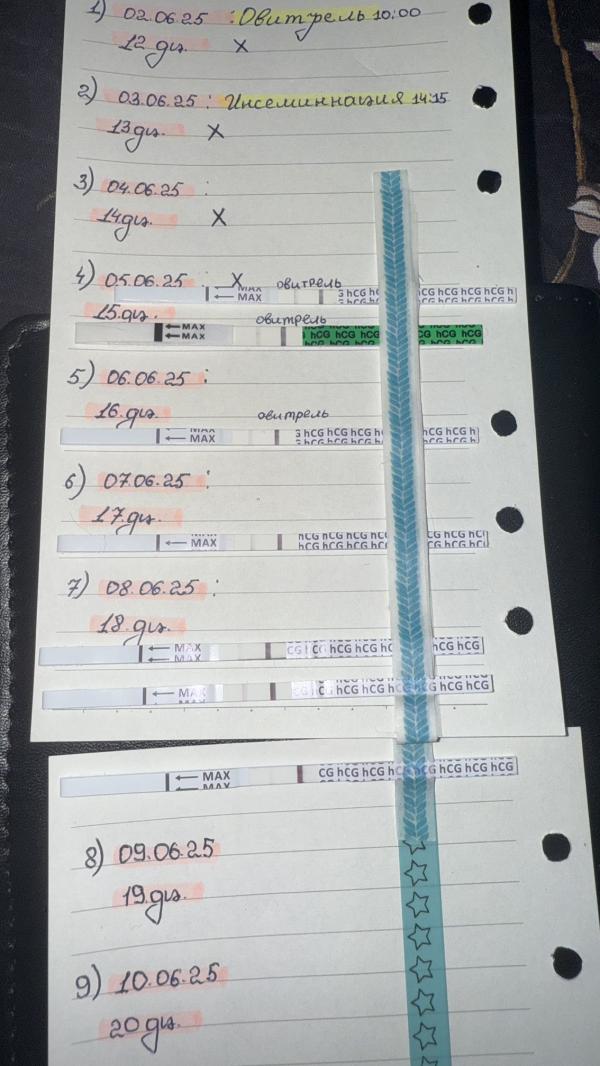 1) 02.06.25 : Овитрель 10:00
12 дц. X
2) 03.06.25 : Инсеминнация 14:15
13 дц. X
3) 04.06.25 :
14 дц. X
4) 05.06.25 : X овитрель
MAX
← MAX hCG hCG hCG hCG hCG hCG h
15 дц. овитрель
← MAX
← MAX hCG hCG hCG hCG hCG hCG
5) 06.06.25 :
16 дц. овитрель
← MAX hCG hCG hCG hCG hCG h
6) 07.06.25 :
17 дц.
← MAX hCG hCG hCG hCG hCG hCG
7) 08.06.25 :
18 дц.
← MAX CG hCG hCG hCG hCG hCG
← MAX hCG hCG hCG hCG hCG hCG
← MAX CG hCG hCG hCG hCG hCG hCG hCG
8) 09.06.25
19 дц.
9) 10.06.25
20 дц.